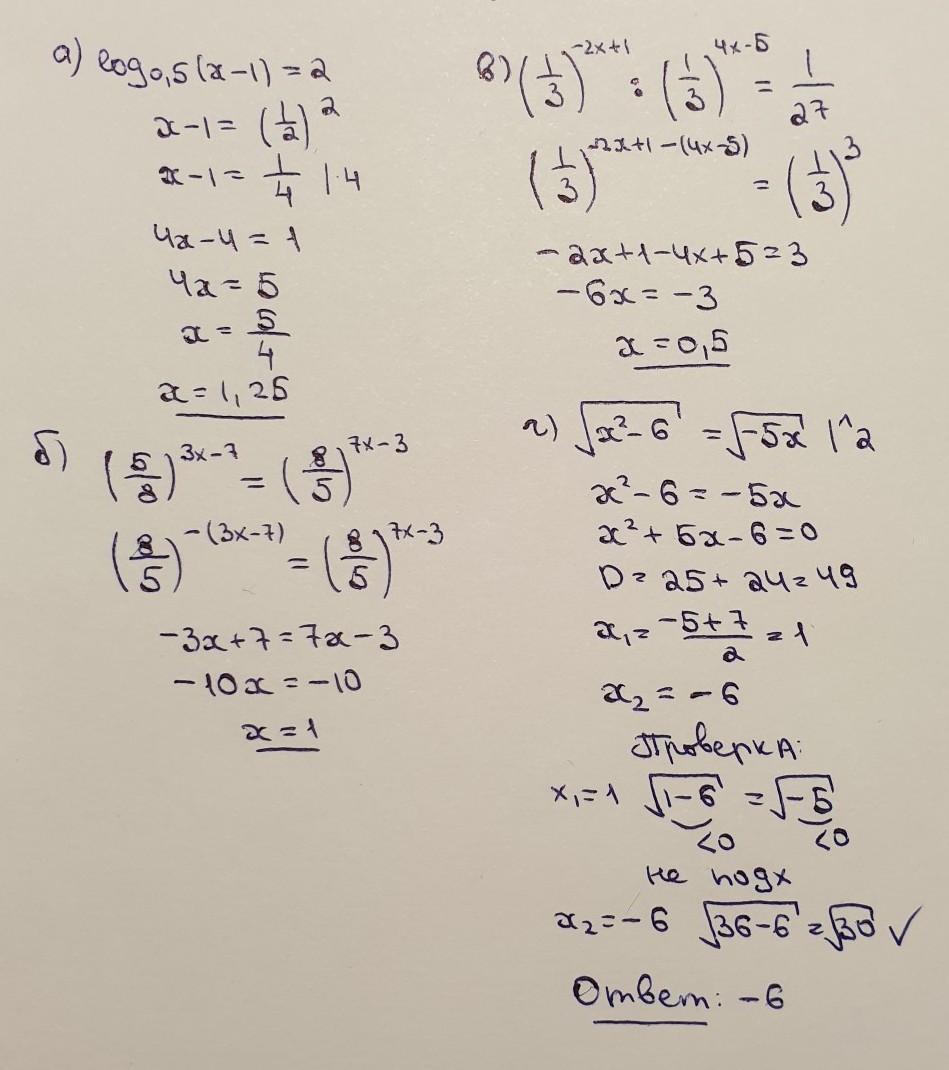 а) log₀,₅(x-1) = 2
x-1 = (1/2)²
x-1 = 1/4 |·4
4x-4 = 1
4x = 5
x = 5/4
x = 1,25
б) (5/8)^(3x-7) = (8/5)^(7x-3)
(8/5)^(-(3x-7)) = (8/5)^(7x-3)
-3x+7 = 7x-3
-10x = -10
x = 1
в) (1/3)^(-2x+1) : (1/3)^(4x-5) = 1/27
(1/3)^(-2x+1-(4x-5)) = (1/3)³
-2x+1-4x+5=3
-6x = -3
x = 0,5
г) √(x²-6) = √(-5x) |^2
x²-6 = -5x
x²+5x-6=0
D = 25+24=49
x₁ = (-5+7)/2 = 1
x₂ = -6
Проверка:
x₁=1 √(1-6) = √(-5)
<0 <0
не подх
x₂=-6 √(36-6) = √30 ✓
Ответ: -6